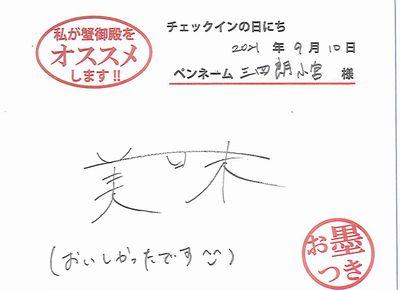 私が蟹御殿を
オススメ
します!!
チェックインの日にち
2021 年 9月 10日
ペンネーム 三四朗小宮 様
美味
(おいしかったです)
お墨
つき